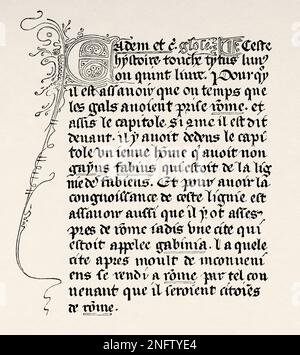 Eadem et c̄ glose. Ceste
hystoire touche tytus liui9
ou quint liure. Pour quoy
il est assauoir que ou temps que
les gals auoient prise rōme. et
assis le capitole si cōme il est dit
deuant. il y auoit dedens le capi
tole vn ienne hōme q̄ auoit non
gayus fabius qui estoit de la lig
nie des fabiens. Et pour auoir la
congnoissance de ceste lignie est
assauoir aussi que il y ot asses
pres de rome iadis vne cite qui
estoit appelee gabinia. La quele
cite apres moult de inconueni
ens se rendi a rōme par tel con
uenant que il seroient citoiēs
de rōme.
alamy
Image ID: 2NFTYE4
www.alamy.com